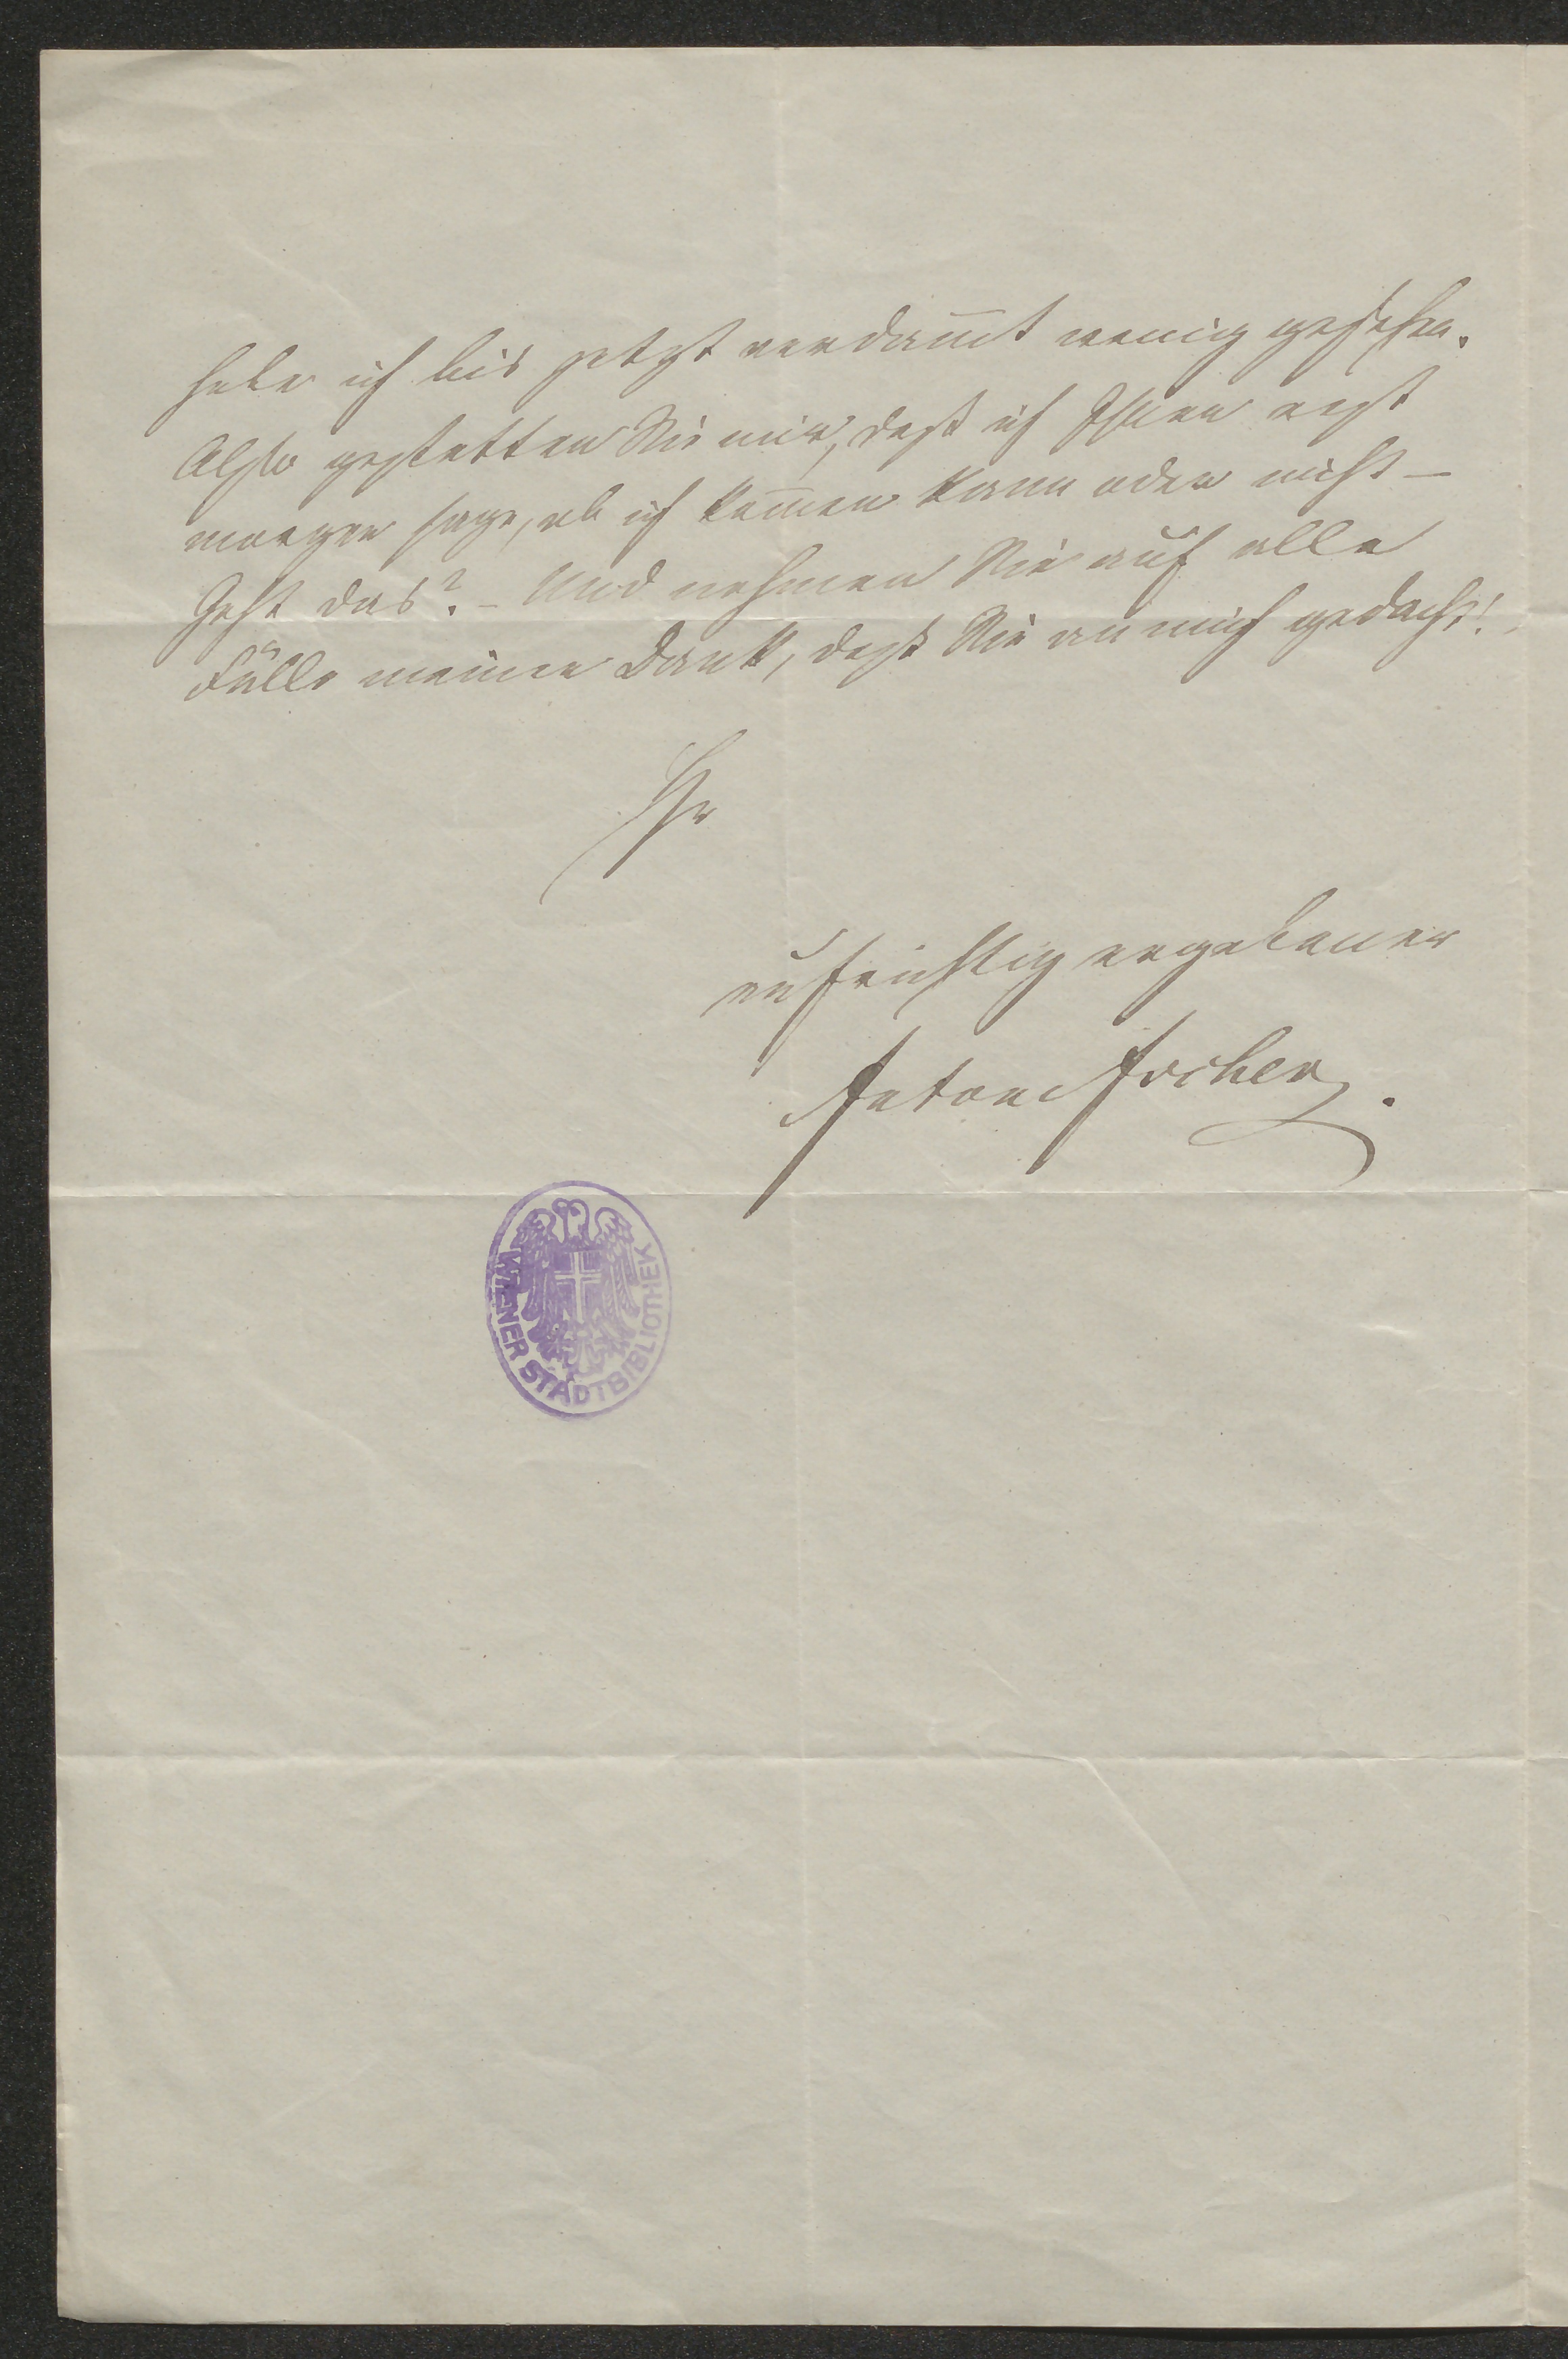 habe ich bis jetzt verdam̅t wenig gesehen.
Also gestatten Sie mir, daß ich Ihnen erst
morgen sage, ob ich kom̅en kann oder nicht –
Geht das? – Und nehmen Sie auf alle
Fälle meinen Dank, daß Sie an mich gedacht!
Ihr
aufrichtig ergebener
WIENER STADTBIBLIOTHEK